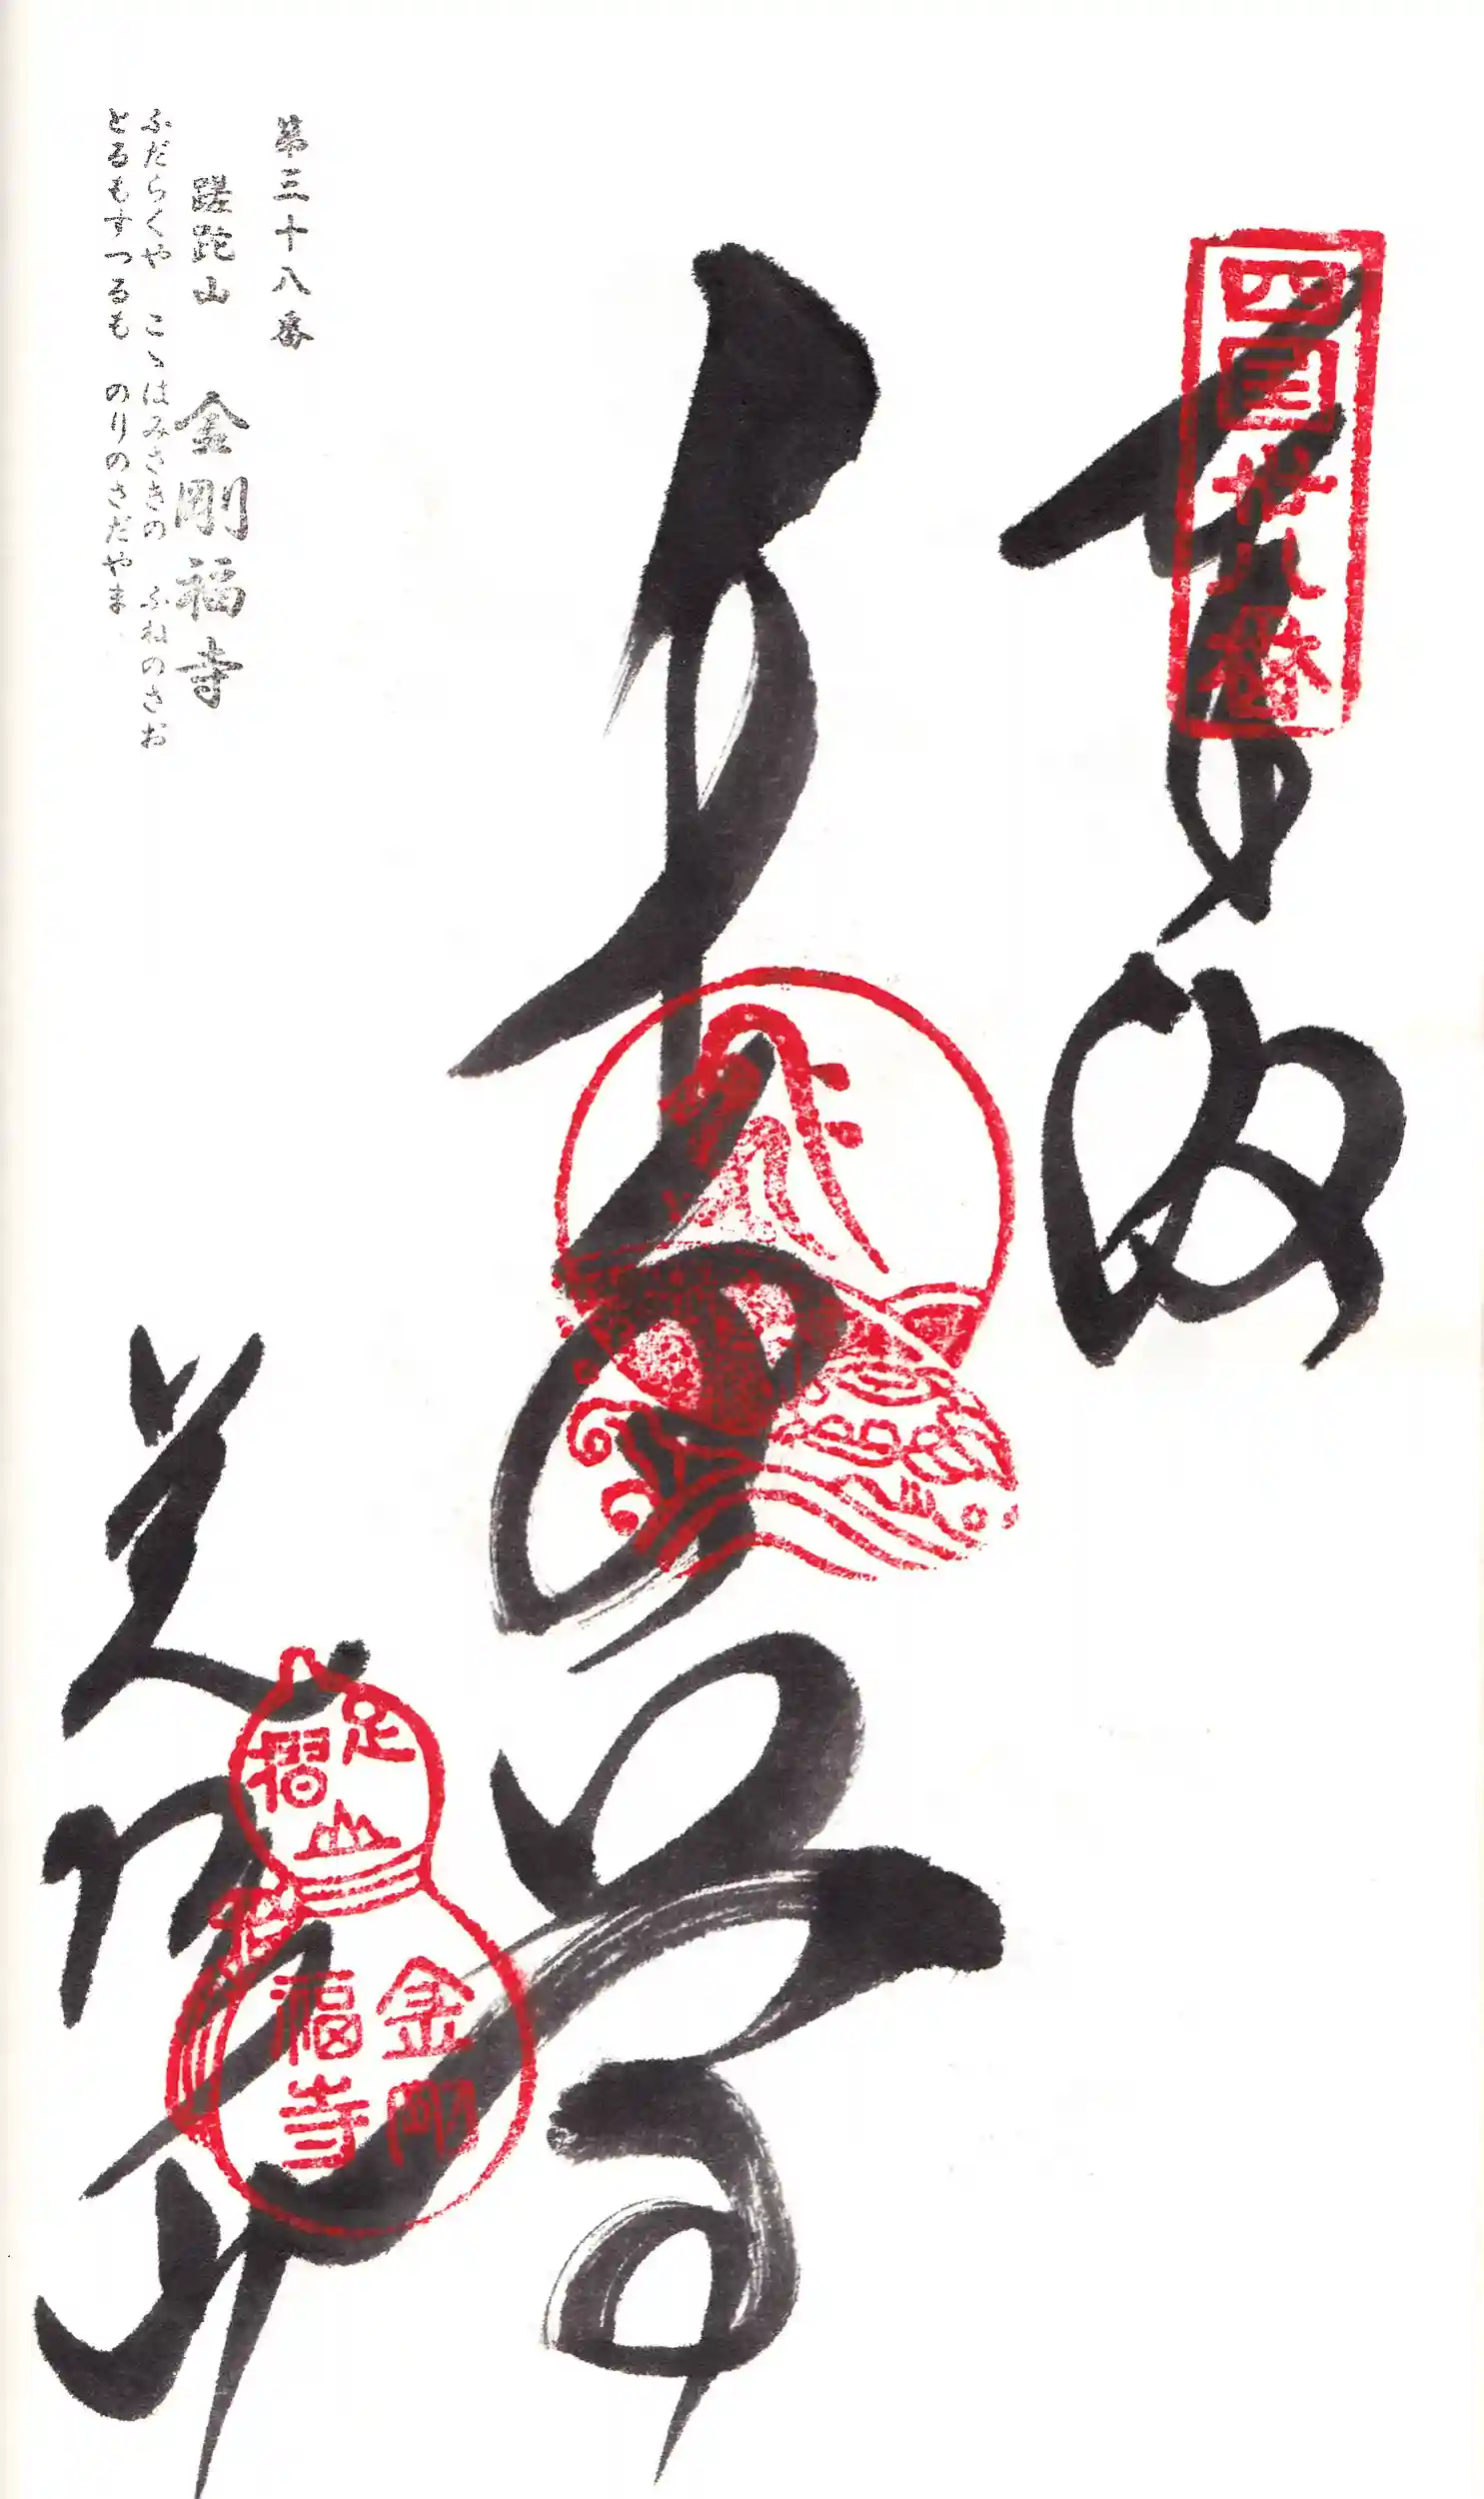 四国卅八番
奉納
足摺山
金剛福寺
第三十八番
蹉跎山 金剛福寺
ふだらくや こゝはみさきの ふねのさお
とるもすつるも のりのさだやま